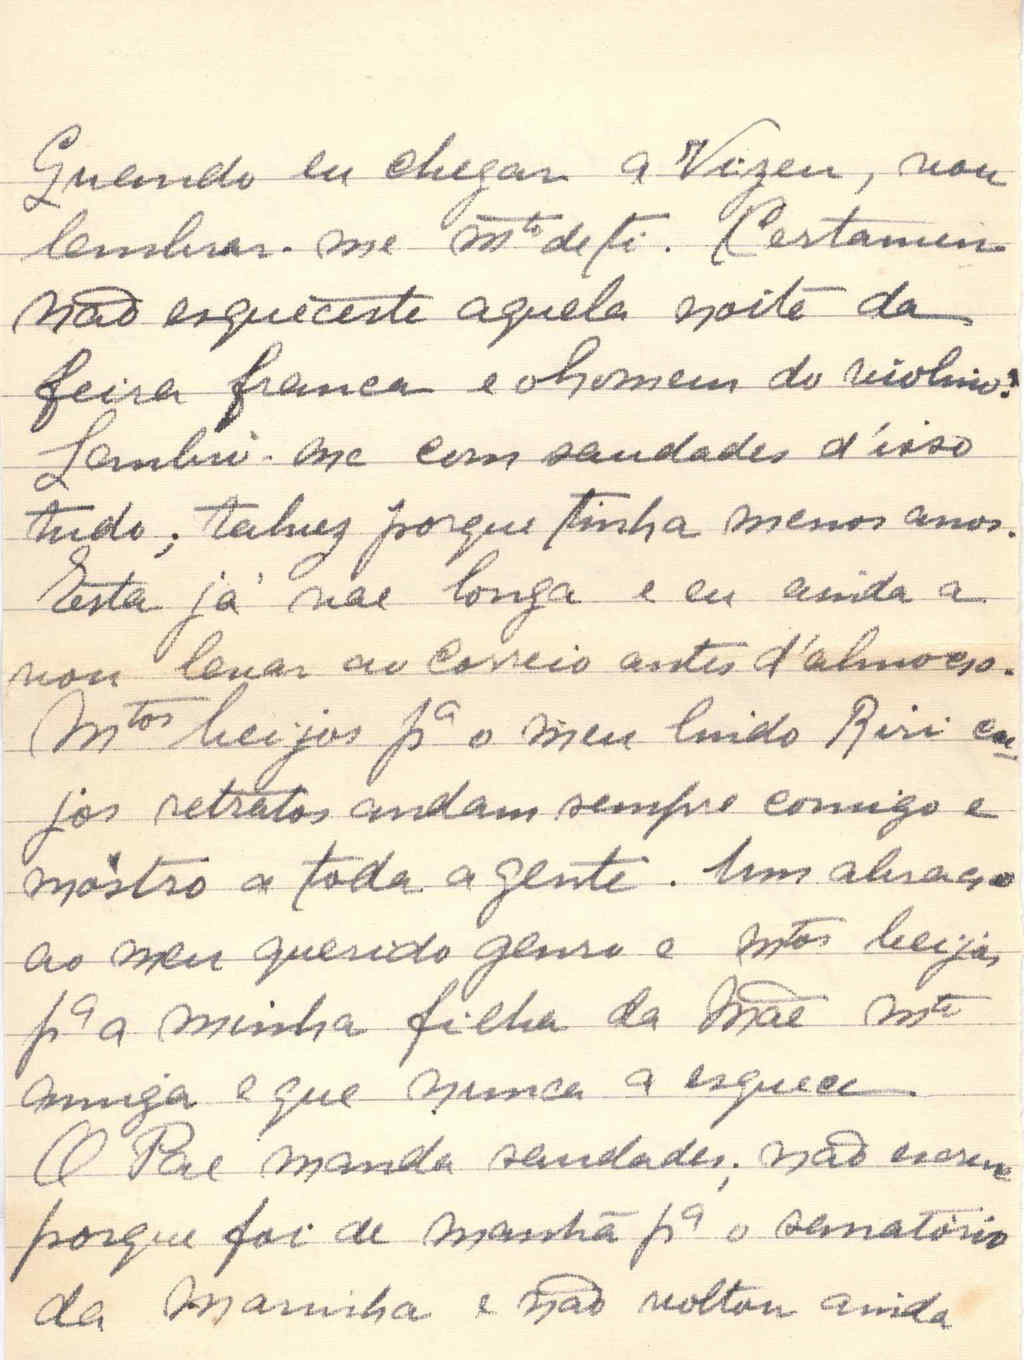 Quando eu chegar a Vizeu, vou
lembrar-me mto de ti. Certamen
não esqueceste aquela noite da
feira franca e o homem do violino?
Lembro-me com saudades d'isso
tudo; talvez porque tinha menos anos.
Esta já vae longa e eu ainda a
vou levar ao correio antes d'almoço.
Mtos beijos pa o meu lindo Riri cu-
jos retratos andam sempre comigo e
móstro a toda a gente. Um abraço
ao meu querido genro e mtos beijos
pa a minha filha da Mãe mto
amiga e que nunca a esquece
O Pae manda saudades; não escreve
porque foi de manhã pa o sanatório
da Marinha e não voltou ainda